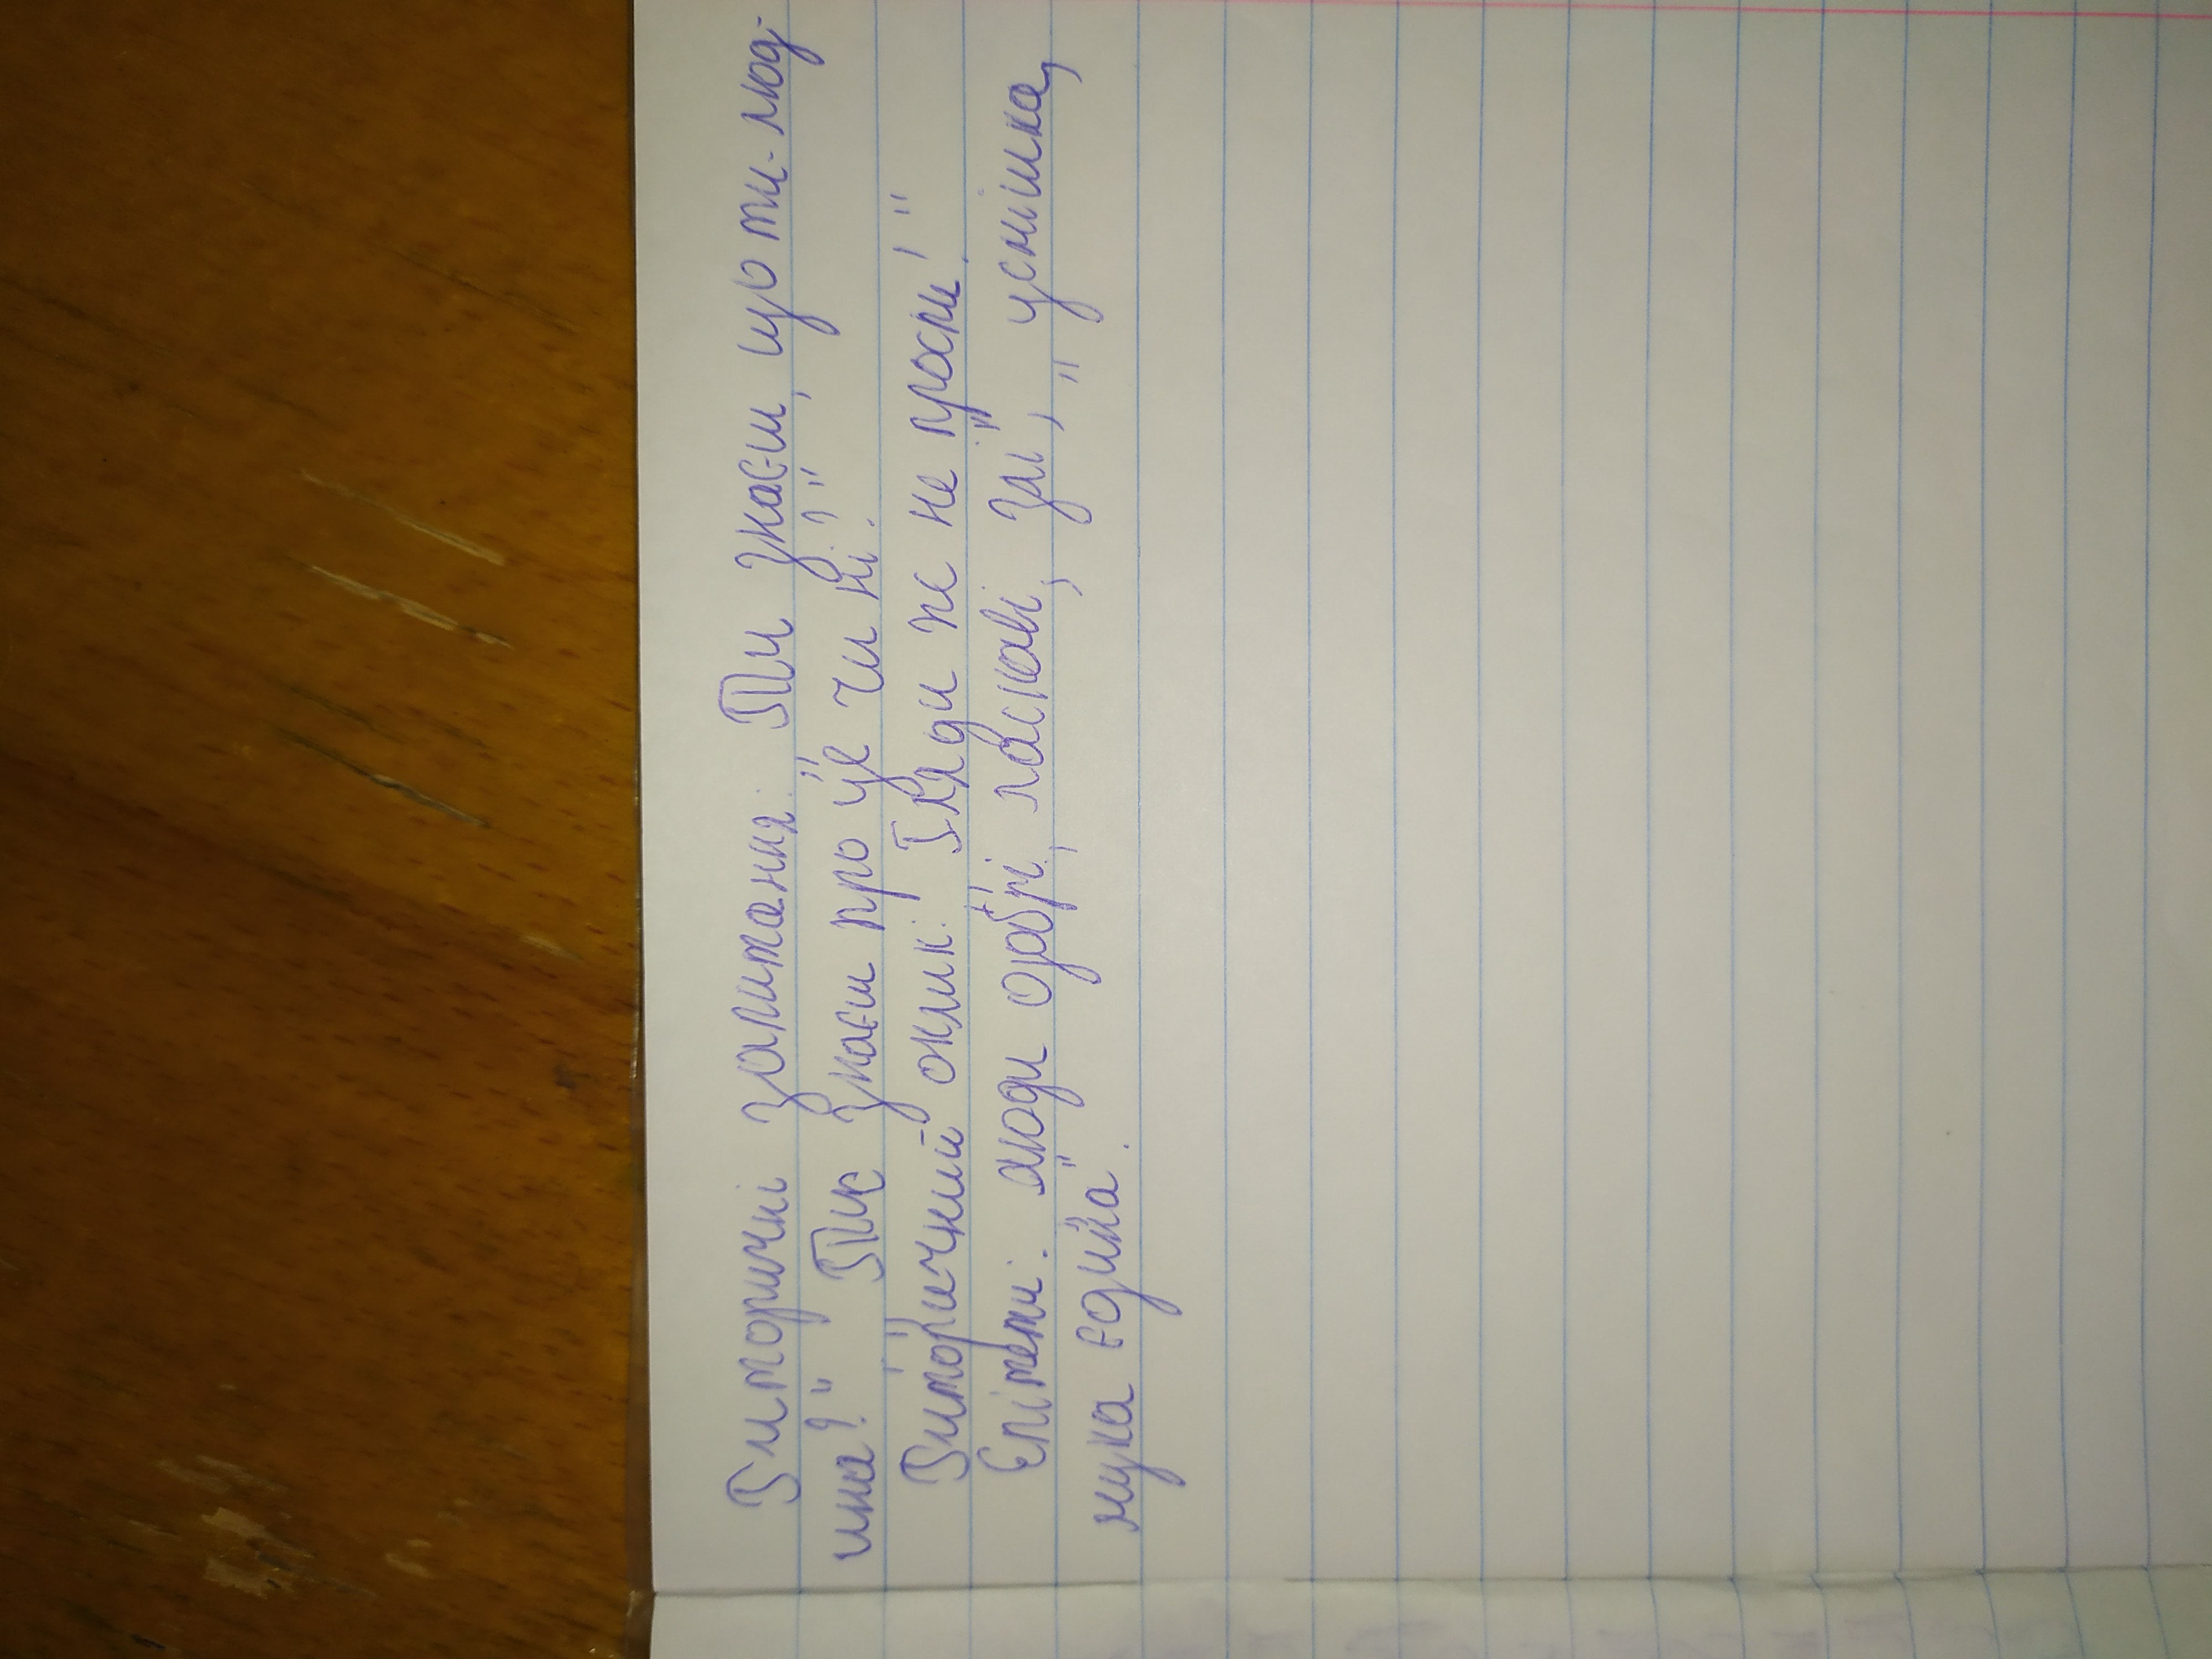 Риторичні запитання: Ти знаєш, що ти - люд-
ина?" "Ти знаєш про це чи ні?"
Риторичний оклик: "Гляди ж не проспи!"
Епітети: "люди добрі, ласкаві, злі", "усмішка,
мука єдина".